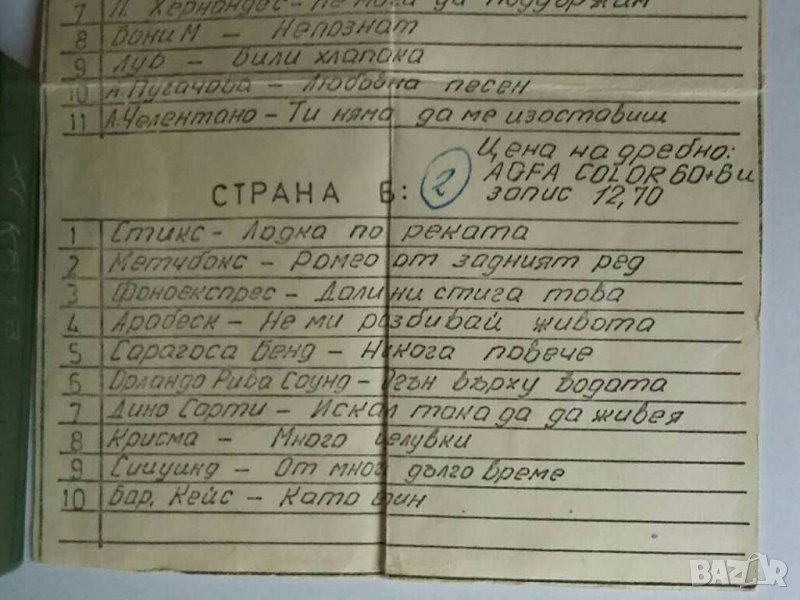 7 П. Хернандес - Не мога да поддържам
8 Бони М - Непознат
9 Лув - Били хлапака
10 А. Пугачова - Любовна песен
11 А. Челентано - Ти няма да ме изоставиш
Цена на дребно:
AGFA COLOR 60+Ви
запис 12,70
СТРАНА Б: 2
1 Стикс - Лодка по реката
2 Метчбокс - Ромео от задният ред
3 Фоноекспрес - Дали ни стига това
4 Арабеск - Не ми разбивай живота
5 Сарагоса Бенд - Никога повече
6 Орландо Рива Саунд - Огън върху водата
7 Дино Сарти - Искал така да да живея
8 Крисма - Много целувки
9 Сишуинд - От много дълго време
10 Бар. Кейс - Като
BAZAR